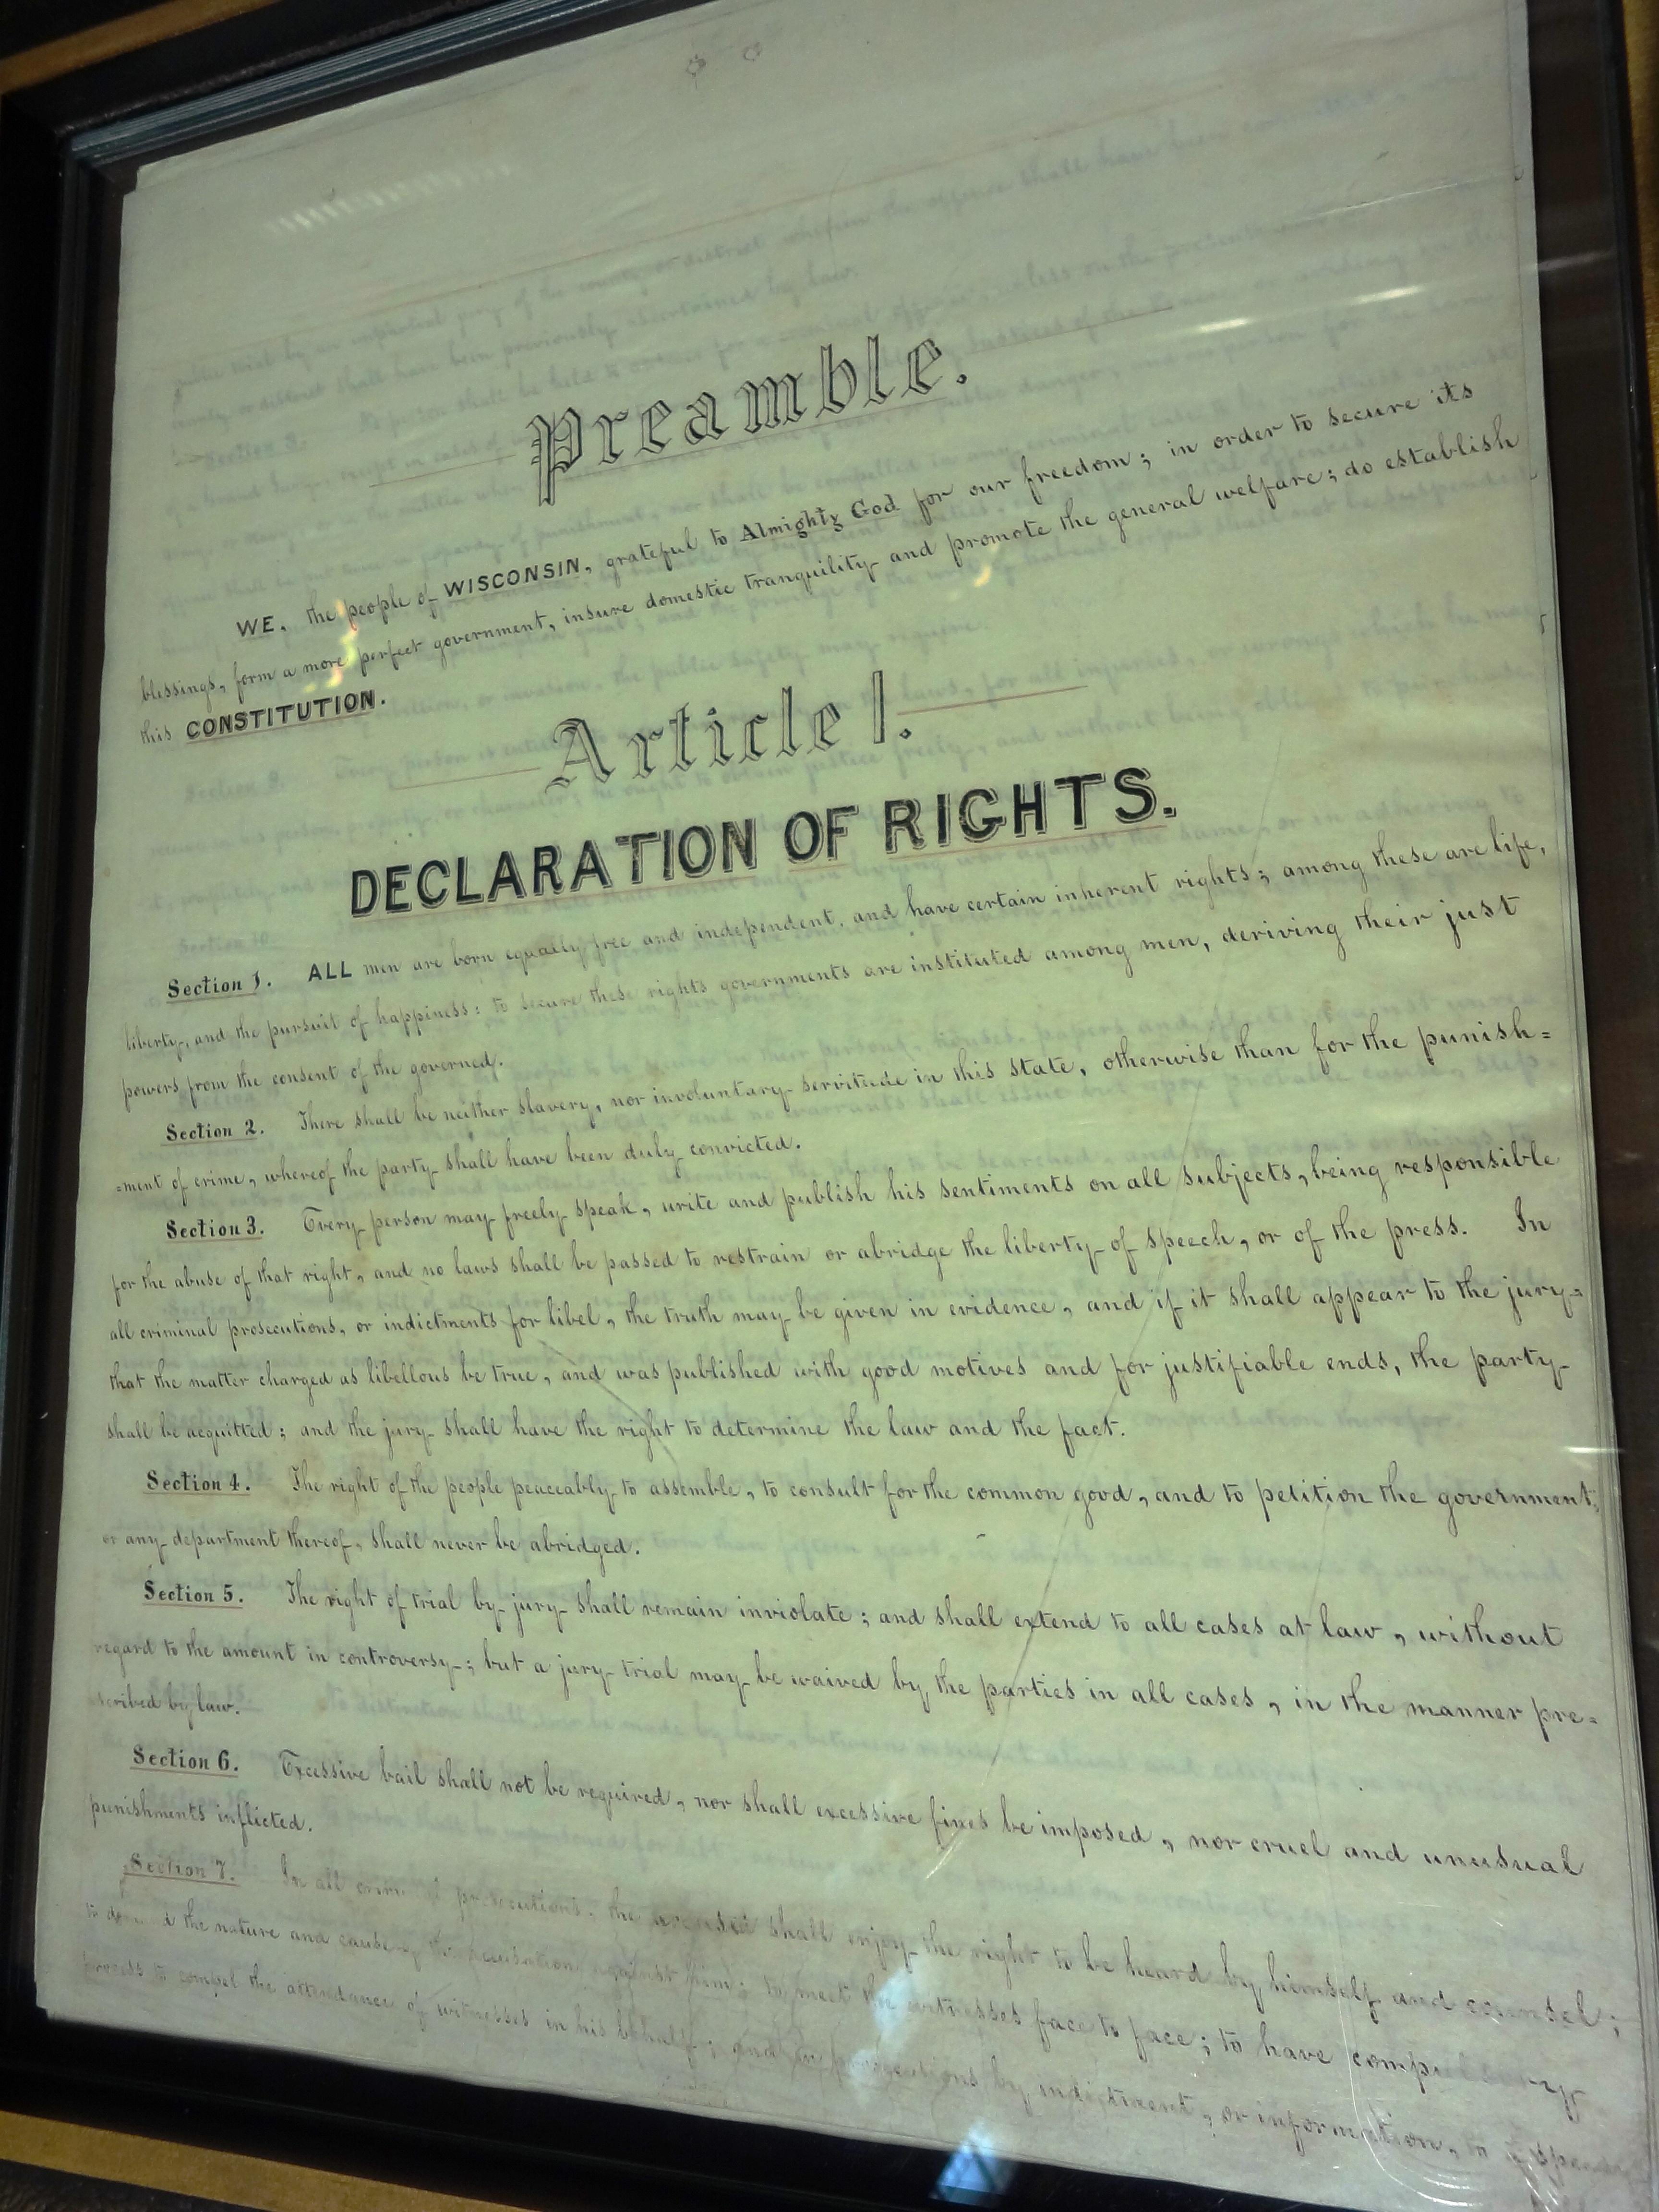 Preamble.
WE, the people of WISCONSIN, grateful to Almighty God for our freedom; in order to secure its
blessings, form a more perfect government, insure domestic tranquility and promote the general welfare; do establish
this CONSTITUTION.
Article I.
DECLARATION OF RIGHTS.
Section 1. ALL men are born equally free and independent, and have certain inherent rights; among these are life,
liberty, and the pursuit of happiness: to secure these rights governments are instituted among men, deriving their just
powers from the consent of the governed.
Section 2. There shall be neither slavery, nor involuntary servitude in this state, otherwise than for the punish=
=ment of crime, whereof the party shall have been duly convicted.
Section 3. Every person may freely speak, write and publish his sentiments on all subjects, being responsible
for the abuse of that right, and no laws shall be passed to restrain or abridge the liberty of speech, or of the press. In
all criminal prosecutions, or indictments for libel, the truth may be given in evidence, and if it shall appear to the jury=
that the matter charged as libellous be true, and was published with good motives and for justifiable ends, the party
shall be acquitted; and the jury shall have the right to determine the law and the fact.
Section 4. The right of the people peaceably to assemble, to consult for the common good, and to petition the government,
or any department thereof, shall never be abridged.
Section 5. The right of trial by jury shall remain inviolate; and shall extend to all cases at law, without
regard to the amount in controversy; but a jury trial may be waived by the parties in all cases, in the manner pre=
scribed by law.
Section 6. Excessive bail shall not be required, nor shall excessive fines be imposed, nor cruel and unusual
punishments inflicted.
Section 7. In all criminal prosecutions, the accused shall enjoy the right to be heard by himself and counsel;
to demand the nature and cause of the accusation against him; to meet the witnesses face to face; to have compulsory
process to compel the attendance of witnesses in his behalf; and in prosecutions by indictment, or information, to a